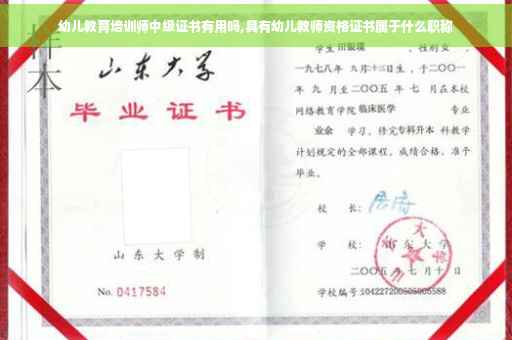 幼儿教育培训师中级证书有用吗,具有幼儿教师资格证书属于什么职称
样本
山东大学
毕业证书
山东大学制
No. 0417584
学生 田银瑞 ,性别女,
一九七八年 九月十三日生,于二〇〇一
年 九 月至二〇〇五 年 七 月在本校
网络教育学院 临床医学 专业
业余 学习,修完专科升本 科教学
计划规定的全部课程,成绩合格,准予
毕业。
校 长:
学 校: 山东大学
二〇〇五 年 七 月 十 日
学校编号:104227200505005588